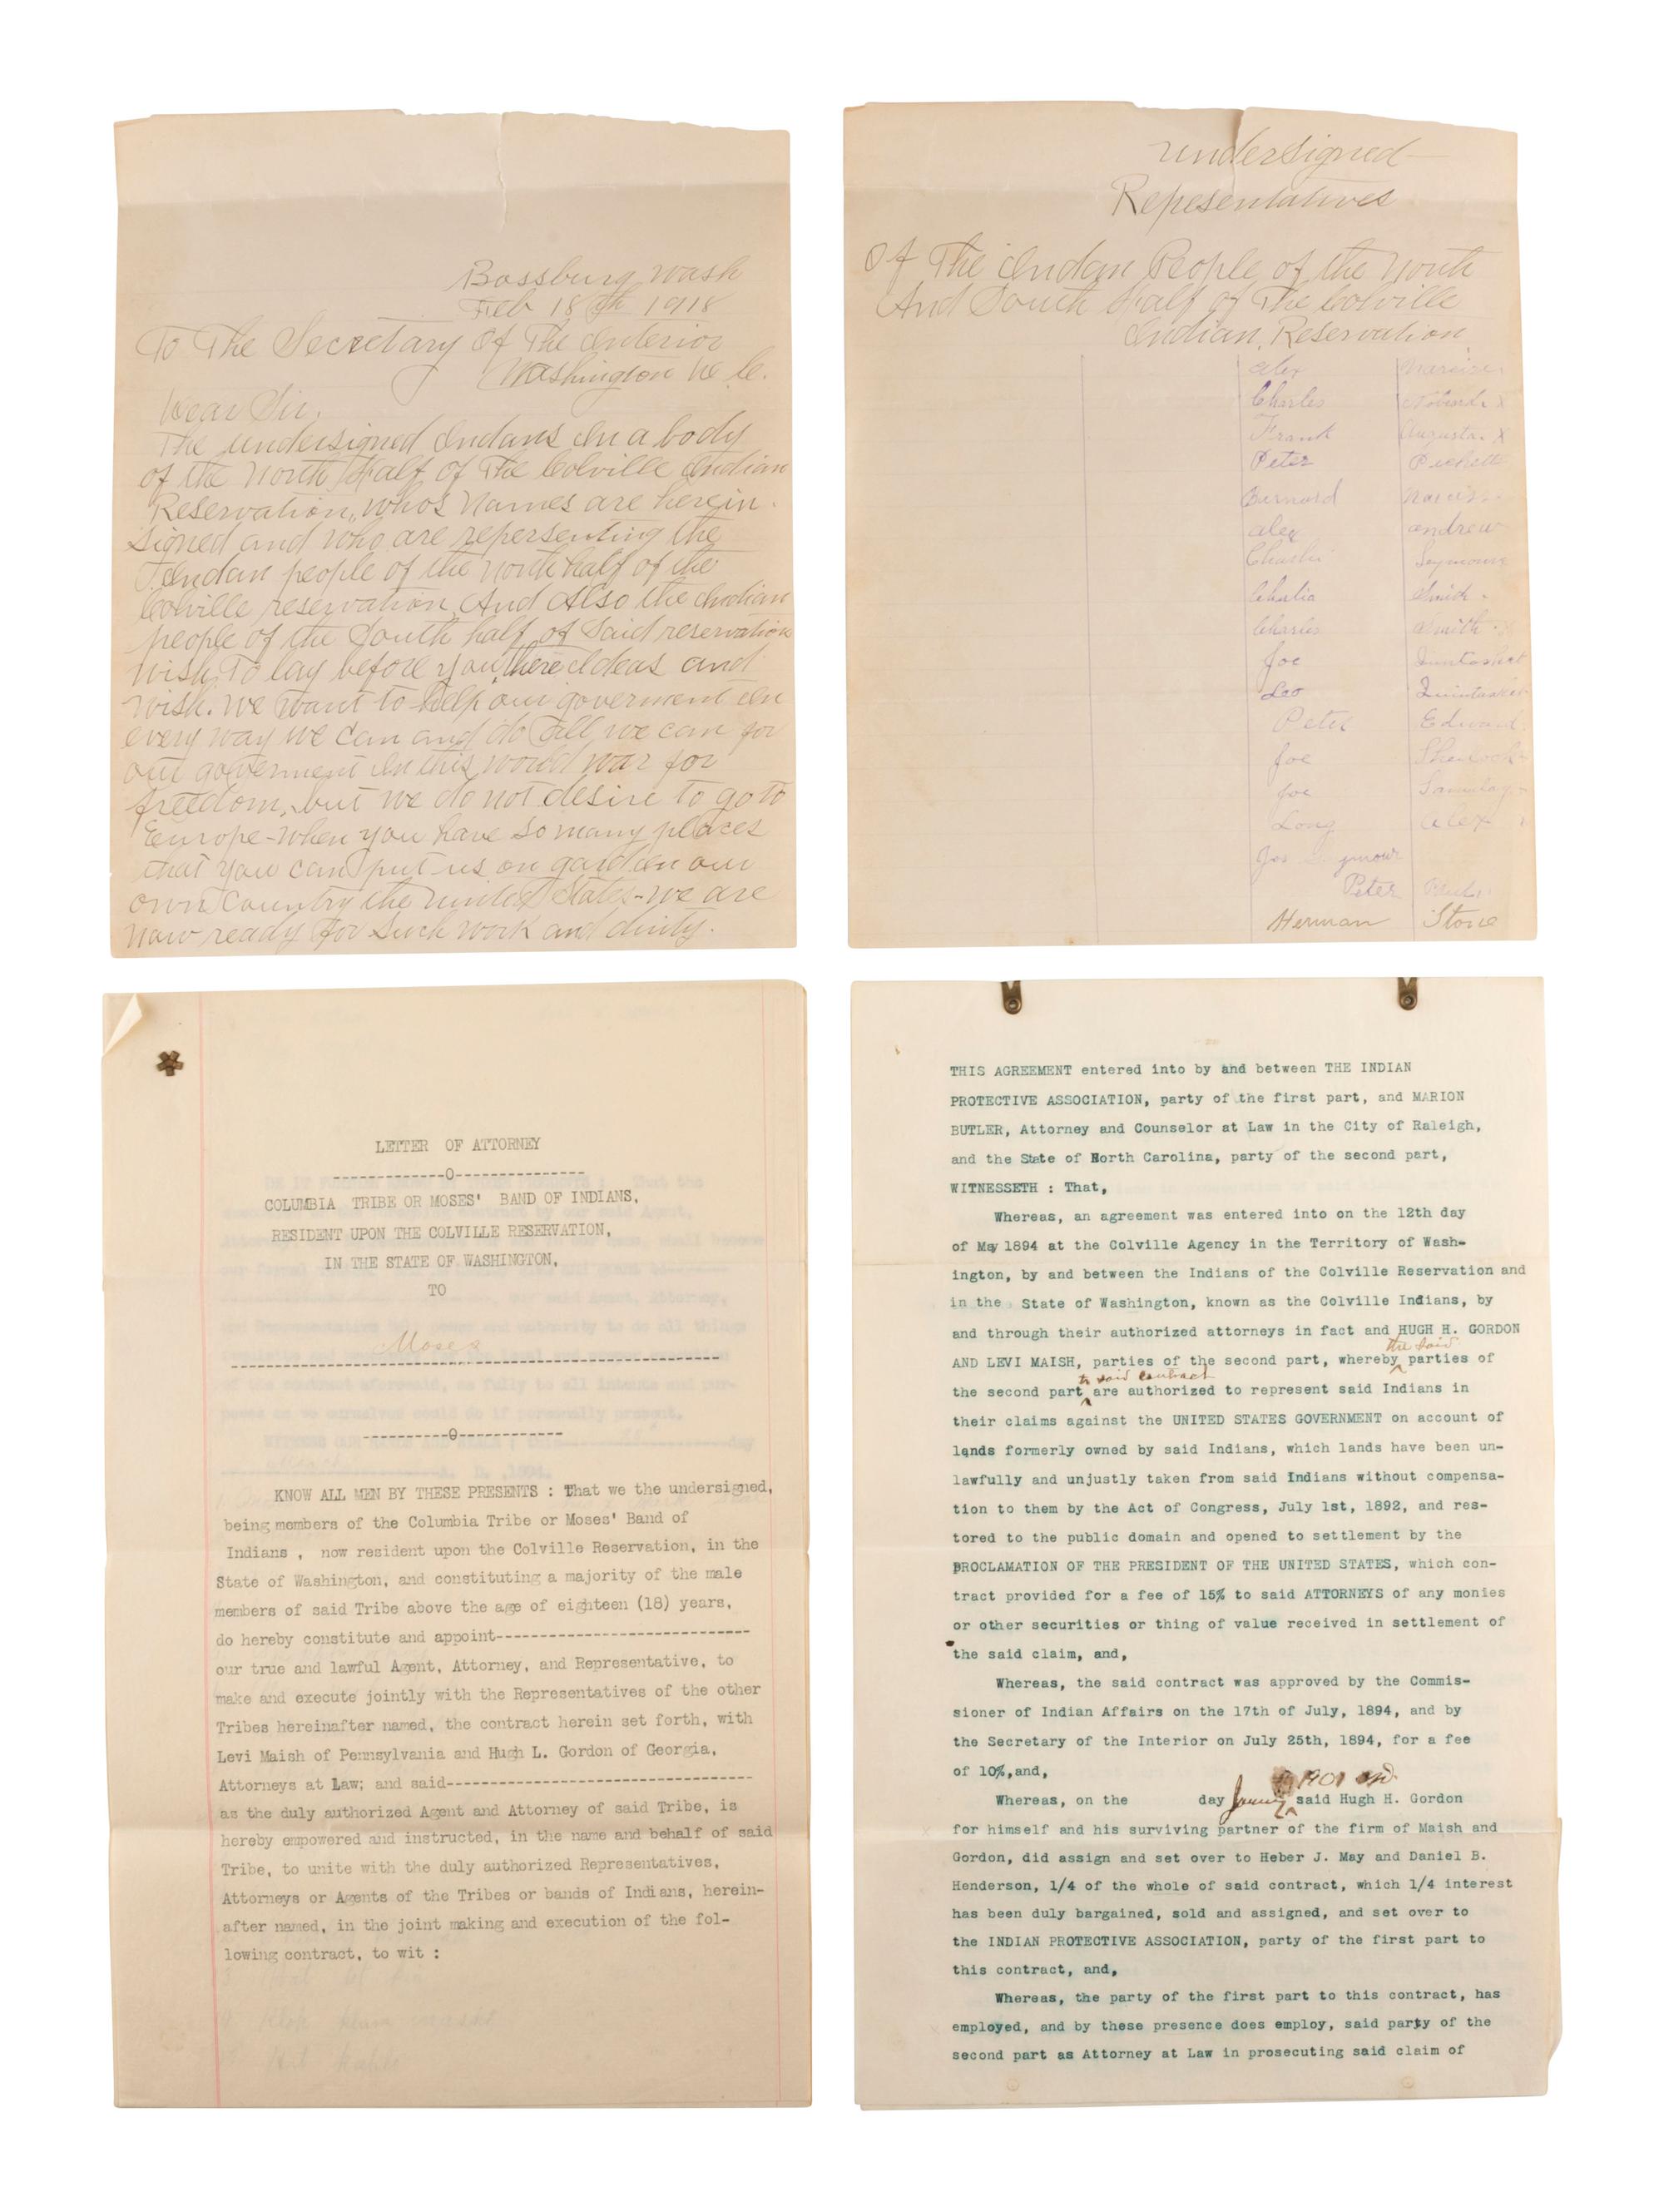 Bossburg Wash
Feb 18th 1918
To The Secretary of The Interior
Washington De C.
Dear Sir.
The undersigned Indans In a body
of the North Half of The Colville Indian
Reservation, whos Names are herein
signed and who are repersenting the
Indan people of the north half of the
Colville reservation, And Also the Indian
people of the South half of Said reservation
wish To lay before you, there Ideas and
wish. we want to help our goverment in
every way we can and do all we can for
our goverment In this world war for
freedom, but we do not desire to go to
Europe - when you have so many places
that you can put us on gard in our
own Country the united States - we are
now ready for such work and duity.
undersigned
Repesentatives
Of The Indan People of the North
And South Half of The Colville
Indian, Reservation
Alex
Charles X
Frank Augusta X
Peter
Bernard
alex andrew
Charlie Seymour
Charlie Smith
Charles Smith
Joe
Leo Quintasket
Peter Edward
Joe Sherlock
Joe
Long Alex
Jos Seymour
Peter
Herman Stone
LETTER OF ATTORNEY
----------0---------------
COLUMBIA TRIBE OR MOSES' BAND OF INDIANS,
RESIDENT UPON THE COLVILLE RESERVATION,
IN THE STATE OF WASHINGTON,
TO
Moses
----------0------------
KNOW ALL MEN BY THESE PRESENTS : That we the undersigned,
being members of the Columbia Tribe or Moses' Band of
Indians , now resident upon the Colville Reservation, in the
State of Washington, and constituting a majority of the male
members of said Tribe above the age of eighteen (18) years,
do hereby constitute and appoint-----------------------------
our true and lawful Agent, Attorney, and Representative, to
make and execute jointly with the Representatives of the other
Tribes hereinafter named, the contract herein set forth, with
Levi Maish of Pennsylvania and Hugh L. Gordon of Georgia,
Attorneys at Law; and said-----------------------------------
as the duly authorized Agent and Attorney of said Tribe, is
hereby empowered and instructed, in the name and behalf of said
Tribe, to unite with the duly authorized Representatives,
Attorneys or Agents of the Tribes or bands of Indians, herein-
after named, in the joint making and execution of the fol-
lowing contract, to wit :
THIS AGREEMENT entered into by and between THE INDIAN
PROTECTIVE ASSOCIATION, party of the first part, and MARION
BUTLER, Attorney and Counselor at Law in the City of Raleigh,
and the State of North Carolina, party of the second part,
WITNESSETH : That,
Whereas, an agreement was entered into on the 12th day
of May 1894 at the Colville Agency in the Territory of Wash-
ington, by and between the Indians of the Colville Reservation and
in the State of Washington, known as the Colville Indians, by
and through their authorized attorneys in fact and HUGH H. GORDON
the said
AND LEVI MAISH, parties of the second part, whereby parties of
to said contract
the second part are authorized to represent said Indians in
their claims against the UNITED STATES GOVERNMENT on account of
lands formerly owned by said Indians, which lands have been un-
lawfully and unjustly taken from said Indians without compensa-
tion to them by the Act of Congress, July 1st, 1892, and res-
tored to the public domain and opened to settlement by the
PROCLAMATION OF THE PRESIDENT OF THE UNITED STATES, which con-
tract provided for a fee of 15% to said ATTORNEYS of any monies
or other securities or thing of value received in settlement of
the said claim, and,
Whereas, the said contract was approved by the Commis-
sioner of Indian Affairs on the 17th of July, 1894, and by
the Secretary of the Interior on July 25th, 1894, for a fee
of 10%,and,
1901
Whereas, on the day said Hugh H. Gordon
for himself and his surviving partner of the firm of Maish and
Gordon, did assign and set over to Heber J. May and Daniel B.
Henderson, 1/4 of the whole of said contract, which 1/4 interest
has been duly bargained, sold and assigned, and set over to
the INDIAN PROTECTIVE ASSOCIATION, party of the first part to
this contract, and,
Whereas, the party of the first part to this contract, has
employed, and by these presence does employ, said party of the
second part as Attorney at Law in prosecuting said claim of